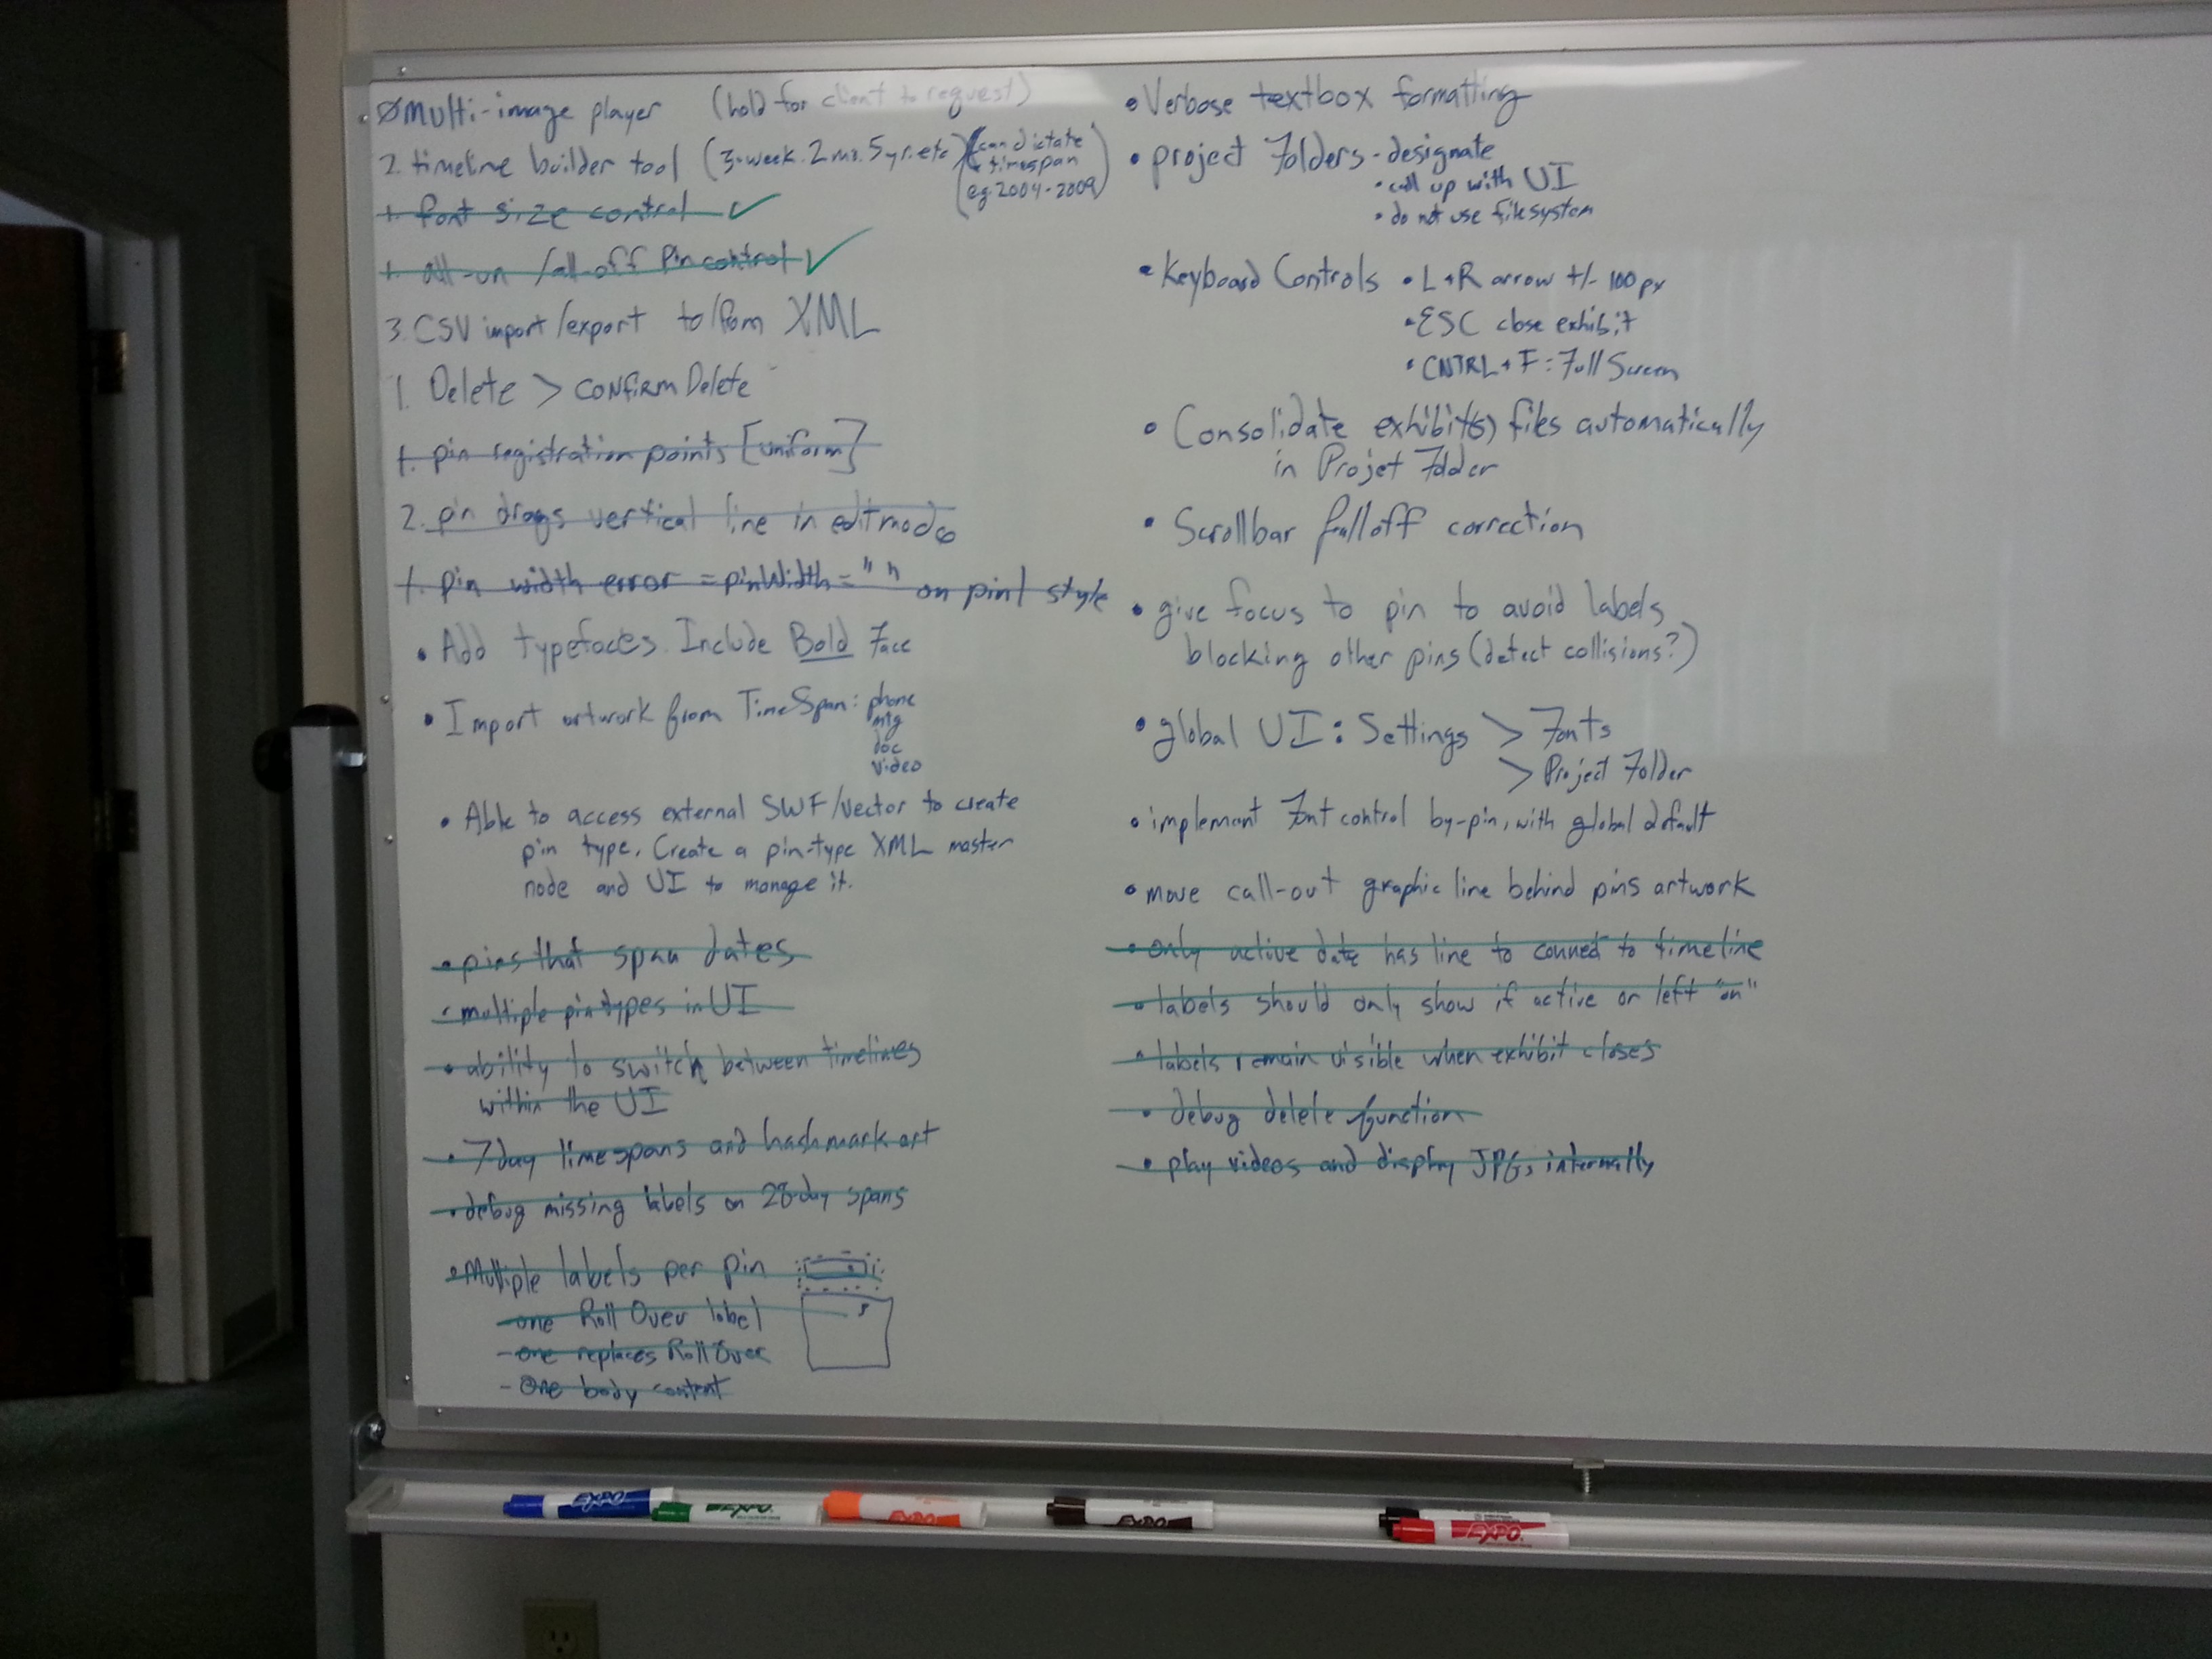 Ømulti-image player (hold for client to request)
2. timeline builder tool (3-week. 2mo. 5yr. etc) (can dictate
timespan
eg. 2004-2009)
1. font size control ✓
1. all-on /all-off Pin control ✓
3. CSV import/export to/from XML
1. Delete > CONFIRM Delete
1. pin registration points [uniform]
2. pin drags vertical line in edit mode
1. pin width error = pinWidth = " " on pin 1 style
• Add typefaces. Include Bold Face
• Import artwork from TimeSpan: phone
mtg
doc
video
• Able to access external SWF/vector to create
pin type. Create a pin-type XML master
node and UI to manage it.
• pins that span dates
• multiple pin types in UI
• ability to switch between timelines
within the UI
• 7 day timespans and hashmark art
• debug missing labels on 28-day spans
• Multiple labels per pin
- one Roll Over label
- one replaces Roll Over
- One body content
• Verbose textbox formatting
• project Folders - designate
• call up with UI
• do not use filesystem
• Keyboard Controls • L + R arrow +/- 100px
• ESC close exhibit
• CNTRL + F : Full Screen
• Consolidate exhibit(s) files automatically
in Projet Folder
• Scrollbar falloff correction
• give focus to pin to avoid labels
blocking other pins (detect collisions?)
• global UI: Settings > Fonts
> Project Folder
• implement Font control by-pin, with global default
• move call-out graphic line behind pins artwork
• only active date has line to connect to timeline
• labels should only show if active or left "on"
• labels remain visible when exhibit closes
• debug delete function
• play videos and display JPGs internally
EXPO
EXPO
EXPO
EXPO
EXPO